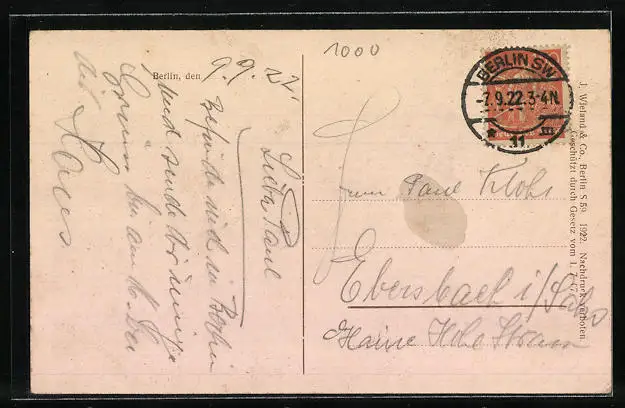 1000
Berlin, den 9. 9. 22.
Liebe Paul
Befinde mich in Berlin
und sende dir einige
Grüsse
Hans
BERLIN SW
-7.9.22.3-4N.
11
Paul Klohs
Ebersbach i/Sa
Kleine Hohe Strasse
J. Wieland & Co., Berlin S 59. 1922. Nachdruck verboten.
Geschützt durch Gesetz vom 1. 7.